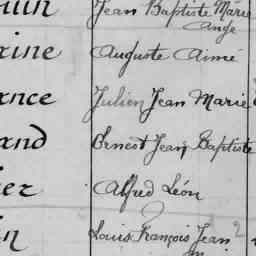 Jean Baptiste Marie
Ange
xine Auguste Aimé
ance Julien Jean Marie
and Ernest Jean Baptiste
er Alfred Léon
in Louis François Jean